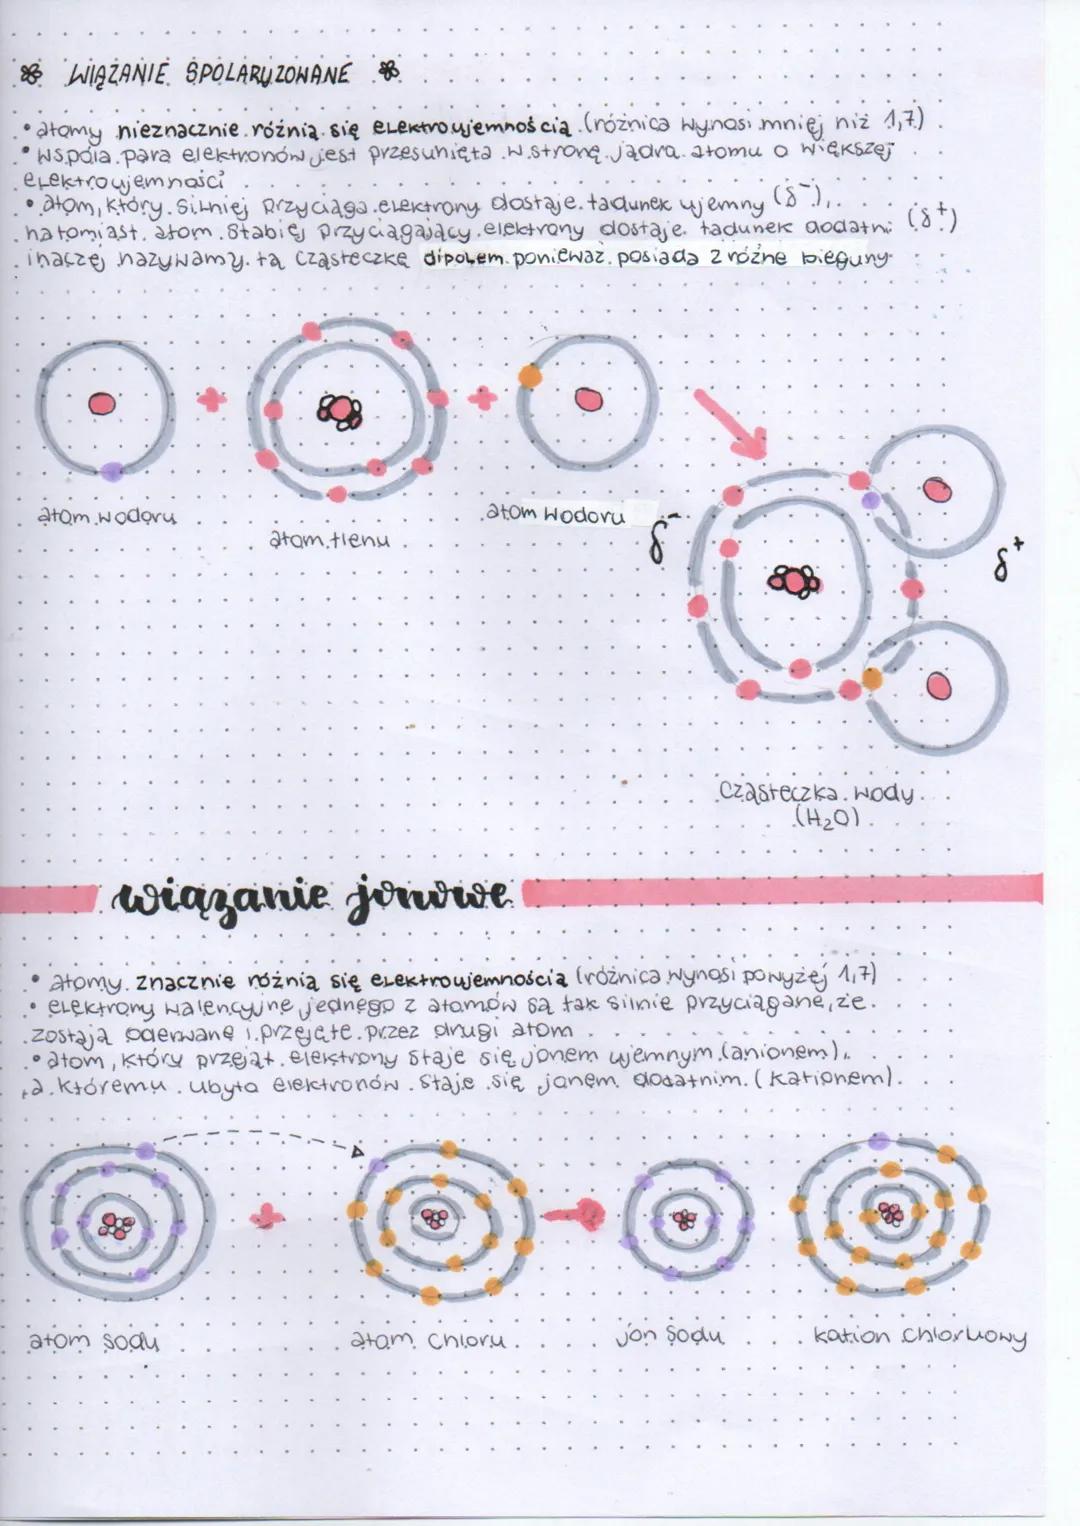 WIĄZANIE SPOLARYZOWANE
• atomy nieznacznie różnią się elektroujemnością (różnica wynosi mniej niż 1,7)
• wspólna para elektronów jest przesunięta w stronę jądra atomu o większej
elektroujemności
• atom, który silniej przyciąga elektrony dostaje ładunek ujemny (δ⁻),
natomiast atom słabiej przyciągający elektrony dostaje ładunek dodatni (δ⁺)
inaczej nazywamy tą cząsteczkę dipolem ponieważ posiada 2 różne bieguny
+
+
atom wodoru
atom tlenu
atom wodoru
δ⁻
δ⁺
cząsteczka wody
(H₂O)
wiązanie jonowe
• atomy znacznie różnią się elektroujemnością (różnica wynosi powyżej 1,7)
• elektrony walencyjne jednego z atomów są tak silnie przyciągane, że
zostają oderwane i przejęte przez drugi atom
• atom, który przejął elektrony staje się jonem ujemnym (anionem),
a któremu ubyło elektronów staje się jonem dodatnim (kationem).
+
atom sodu
atom chloru
jon sodu
kation chlorkowy